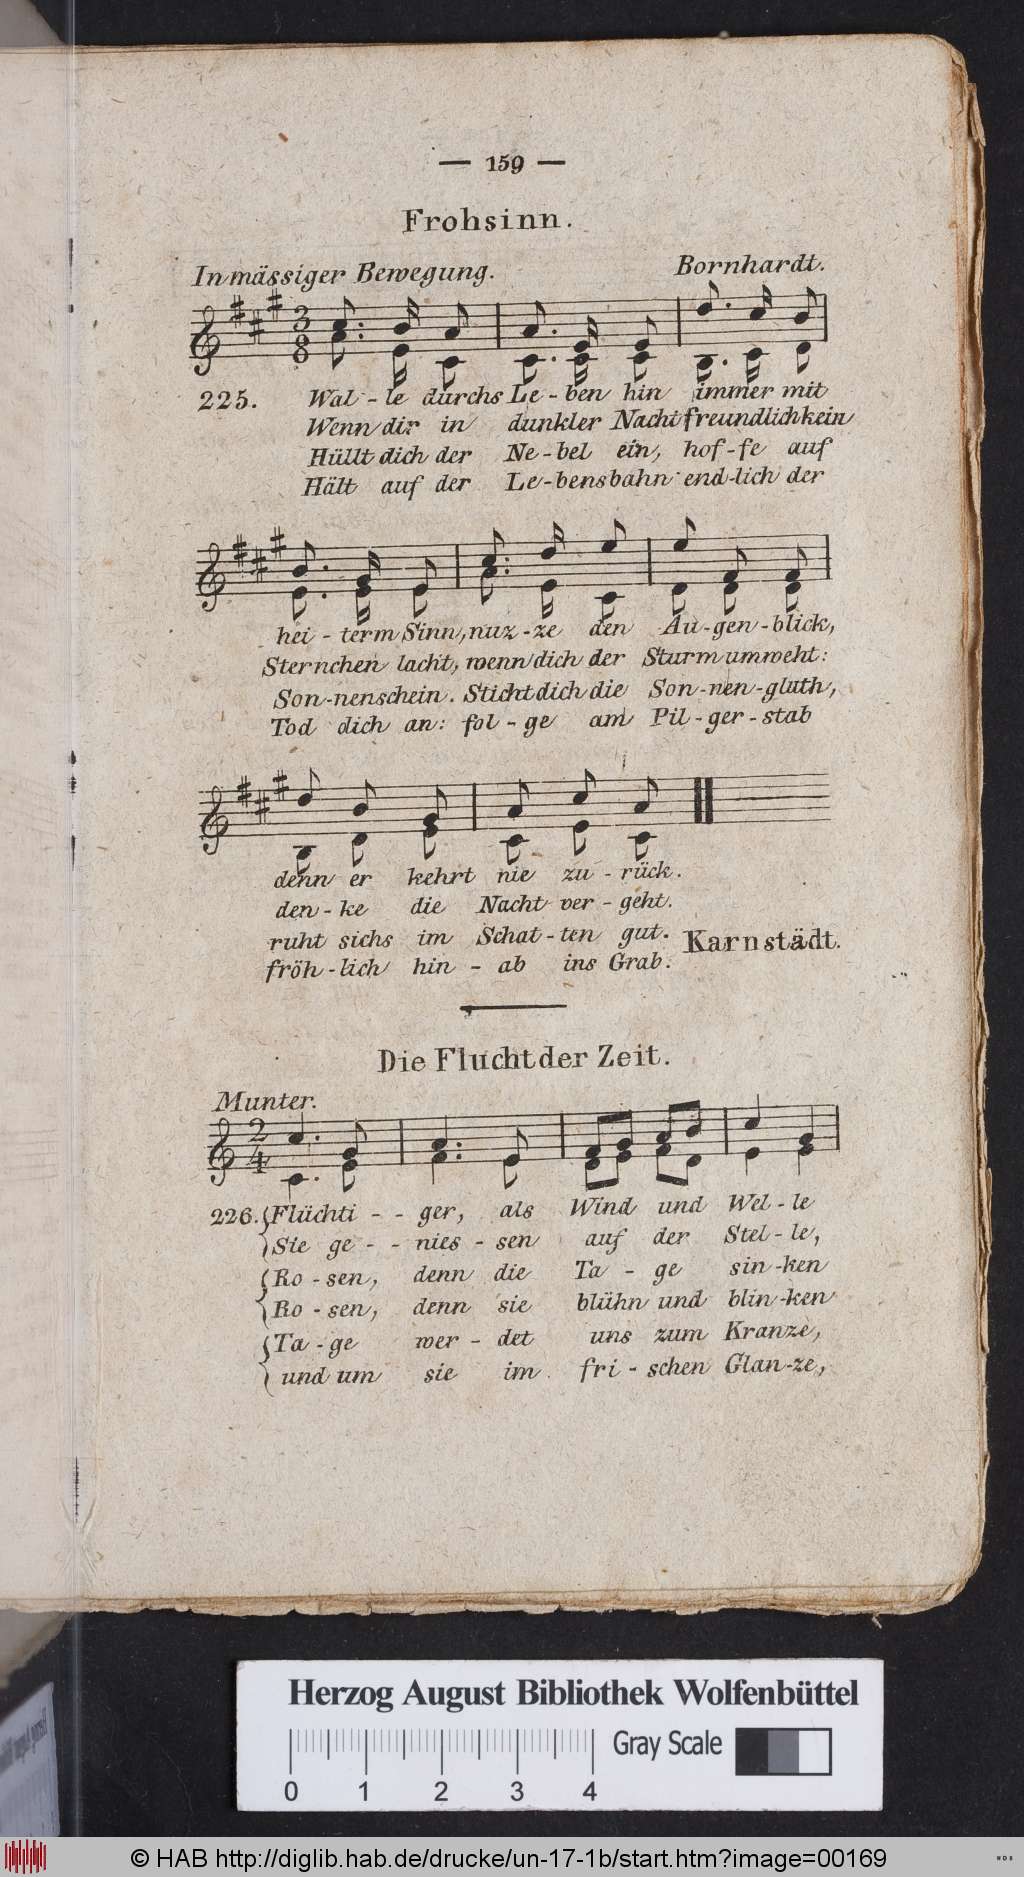 — 159 —
Frohsinn.
In mässiger Bewegung.
Bornhardt.
3
8
225. Wal - le durchs Le - ben hin immer mit
Wenn dir in dunkler Nacht freundlich kein
Hüllt dich der Ne - bel ein, hof - fe auf
Hält auf der Le - bensbahn end - lich der
hei - term Sinn, nuz - ze den Au - gen - blick,
Sternchen lacht, wenn dich der Sturm umweht:
Son - nenschein. Sticht dich die Son - nen - gluth,
Tod dich an: fol - ge am Pil - ger - stab
denn er kehrt nie zu - rück.
den - ke die Nacht ver - geht.
ruht sichs im Schat - ten gut. Karnstädt.
fröh - lich hin - ab ins Grab.
Die Flucht der Zeit.
Munter.
2
4
226. Flüchti - - ger, als Wind und Wel - le
Sie ge - - nies - sen auf der Stel - le,
Ro - sen, denn die Ta - ge sin - ken
Ro - sen, denn sie blühn und blin - ken
Ta - ge wer - det uns zum Kranze,
und um sie im fri - schen Glan - ze,
Herzog August Bibliothek Wolfenbüttel
Gray Scale
0 1 2 3 4
© HAB http://diglib.hab.de/drucke/un-17-1b/start.htm?image=00169